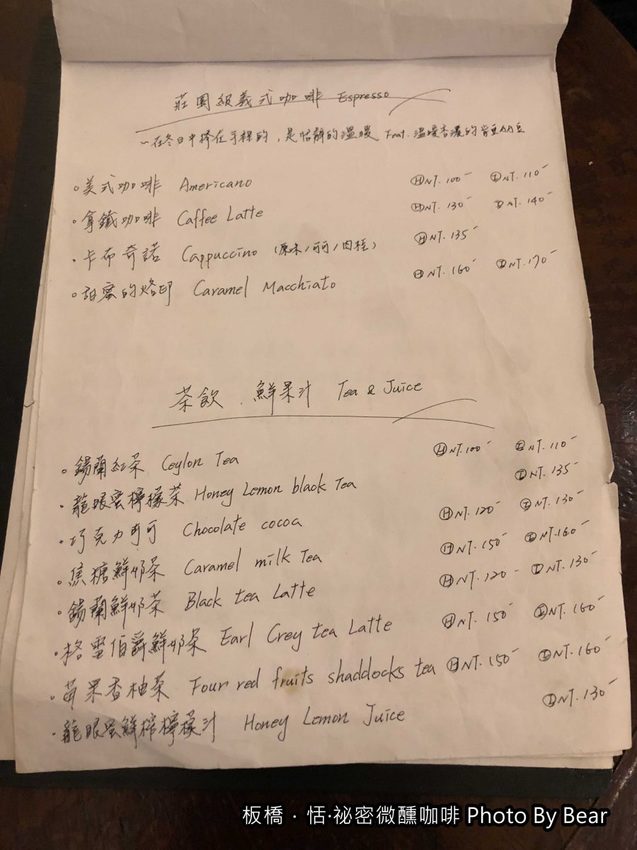 莊園級義式咖啡 Espresso
~在冬日中捧在手裡的，是恬靜的溫暖 Feat. 溫暖香濃的肯亞AA豆
。美式咖啡 Americano ⒽNT.100- ⒾNT.110-
。拿鐵咖啡 Caffee Latte ⒽNT.130- ⒾNT.140-
。卡布奇諾 Cappuccino (原味/可可/肉桂) ⒽNT.135-
。甜蜜的烙印 Caramel Macchiato ⒽNT.160- ⒾNT.170-
茶飲．鮮果汁 Tea & Juice
。錫蘭紅茶 Ceylon Tea ⒽNT.100- ⒾNT.110-
。龍眼蜜檸檬茶 Honey Lemon black Tea ⒾNT.135-
。巧克力可可 Chocolate cocoa ⒽNT.120- ⒾNT.130-
。焦糖鮮奶茶 Caramel milk Tea ⒽNT.150- ⒾNT.160-
。錫蘭鮮奶茶 Black tea Latte ⒽNT.120- ⒾNT.130-
。格雷伯爵鮮奶茶 Earl Grey tea Latte ⒽNT.150- ⒾNT.160-
。莓果香柚茶 Four red fruits shaddocks tea ⒽNT.150- ⒾNT.160-
。龍眼蜜鮮榨檸檬汁 Honey Lemon Juice ⒾNT.130-
板橋．恬‧祕密微醺咖啡 Photo By Bear